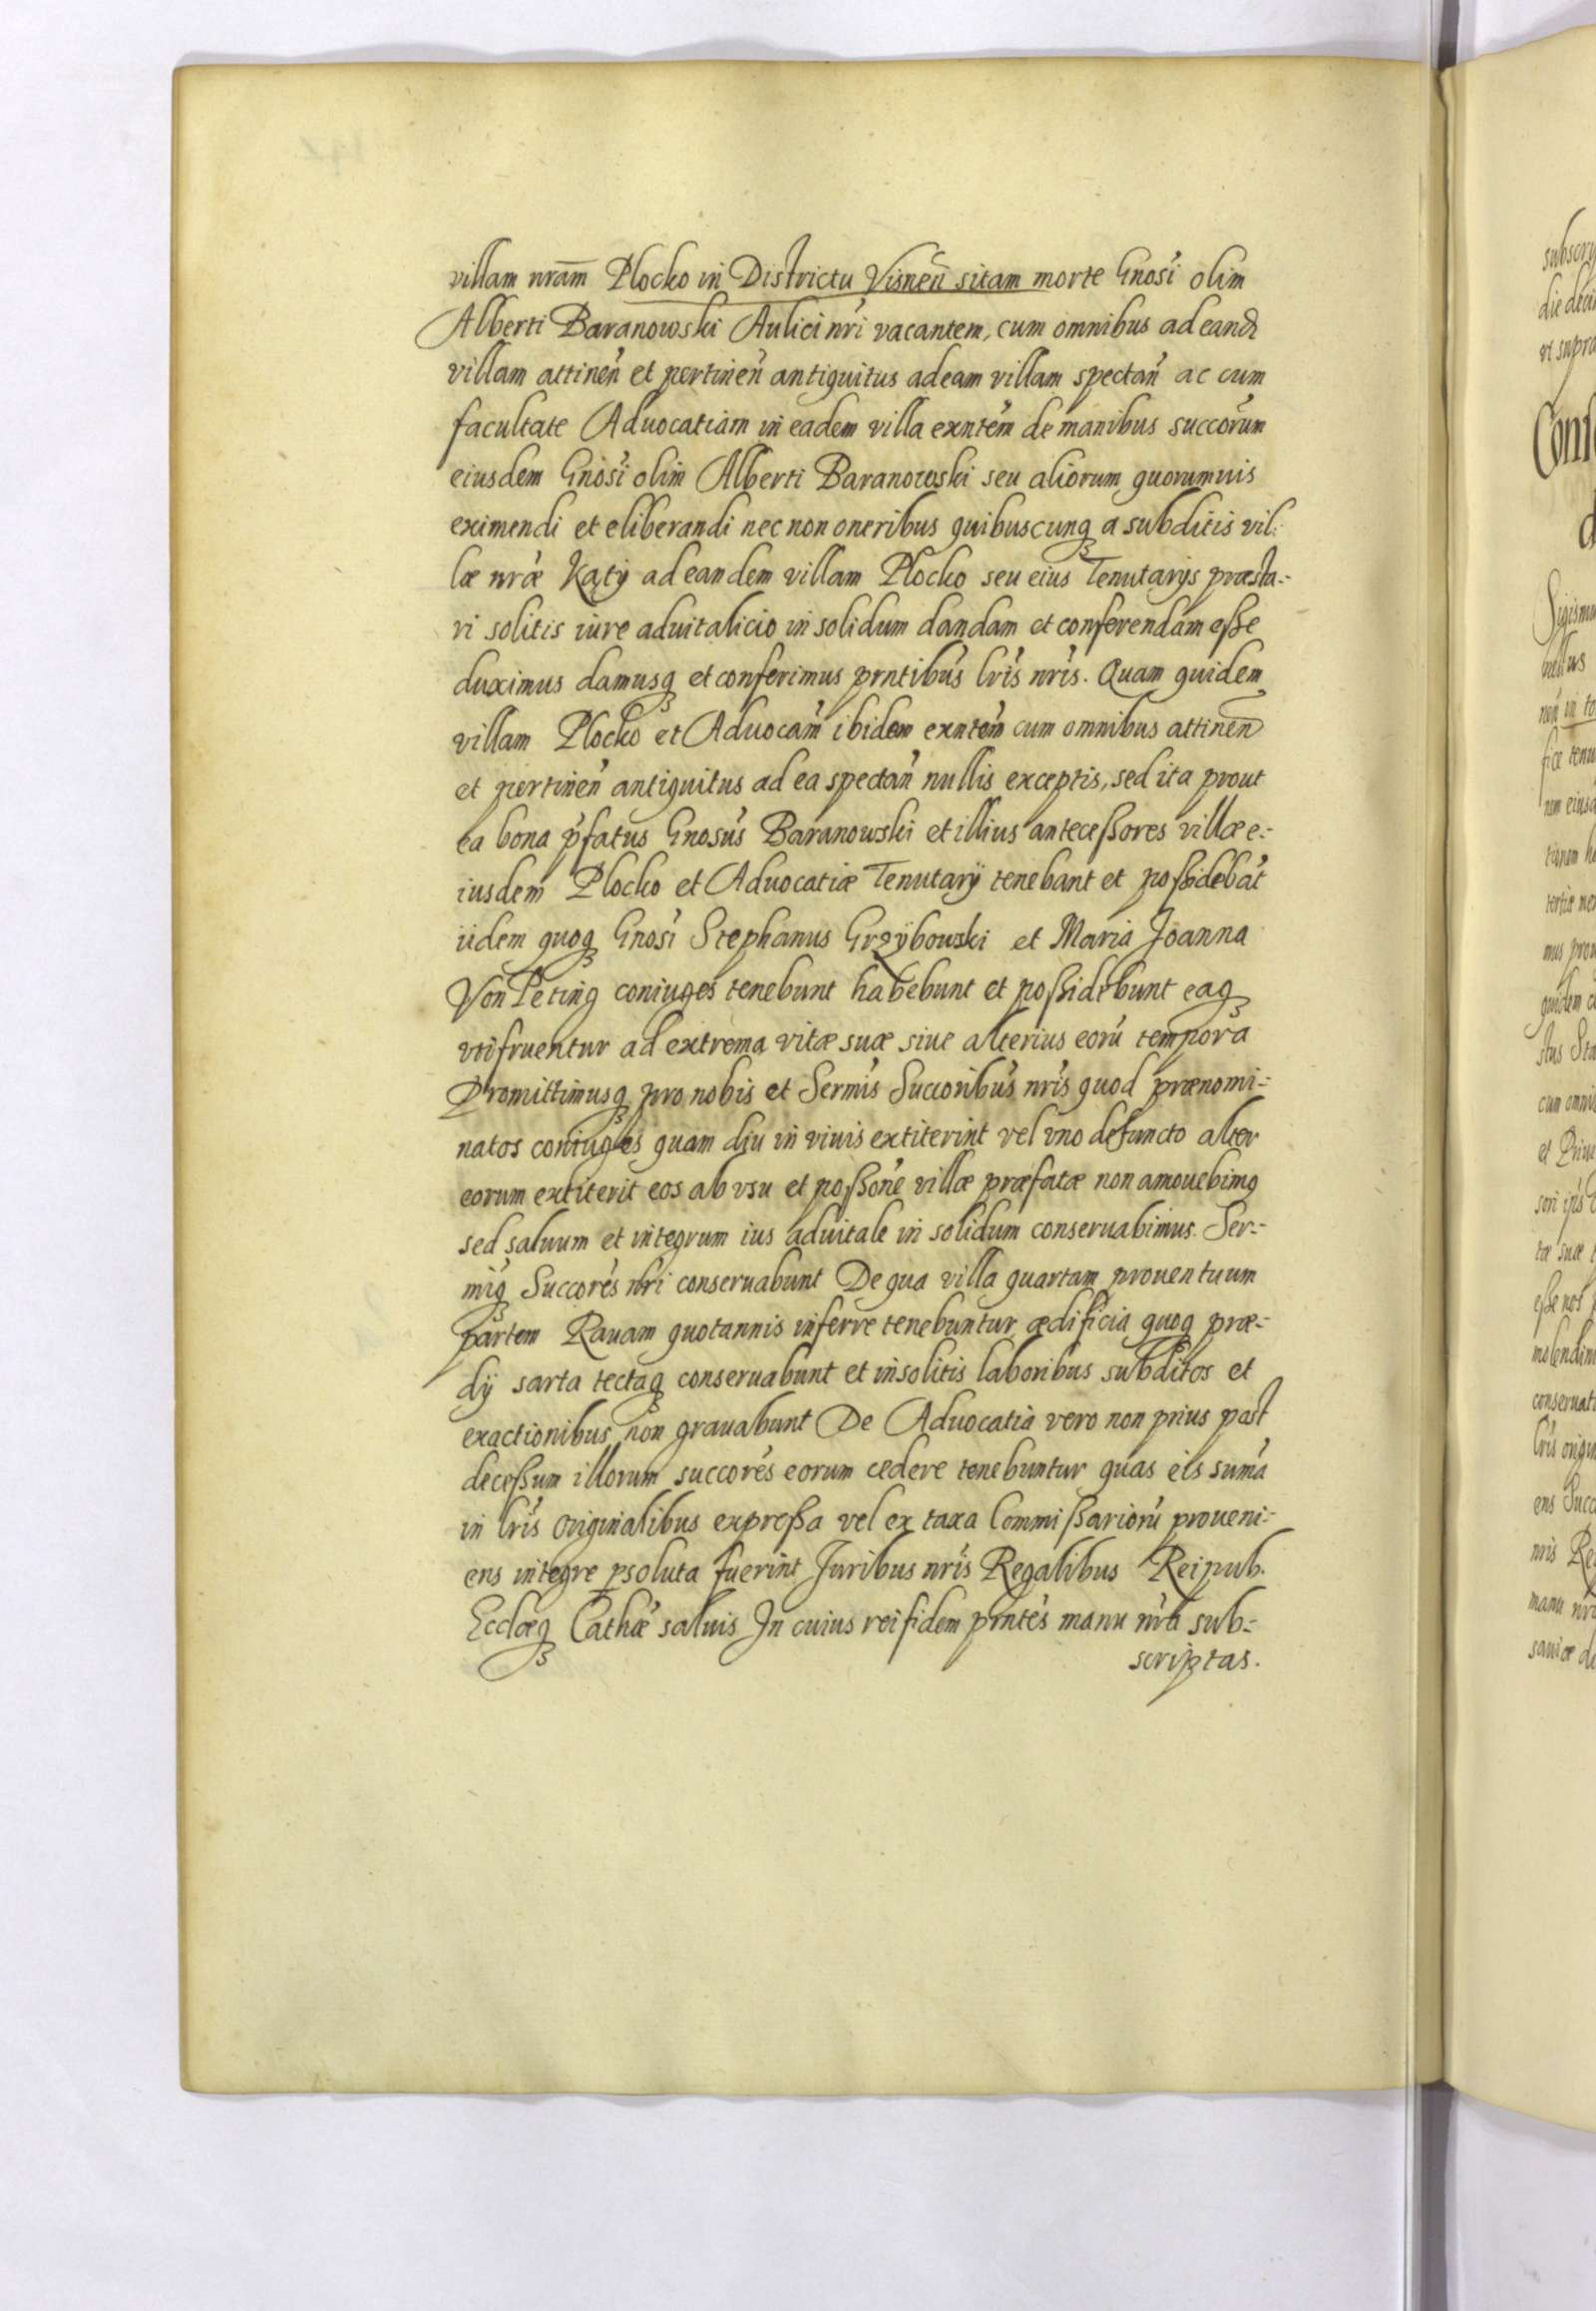 villam nram̄ Plocko in Districtu Visneń sitam morte Gnosi olim
Alberti Baranowski Aulici nri vacantem, cum omnibus ad eand
villam attineń et pertineń antiquitus ad eam villam spectań ac cum
facultate Aduocatiam in eadem villa exntem de manibus succorum
eiusdem Gnosi olim Alberti Baranowski seu aliorum quorumuis
eximendi et eliberandi nec non oneribus quibuscunqꝫ a subditis vil-
læ nræ Katÿ ad eandem villam Plocko seu eius Tenutarÿs præsta-
ri solitis iure aduitalicio in solidum dandam et conferendam eſse
duximus damusqꝫ et conferimus prntibus lris nris. Quam quidem
villam Plocko et Aduocam̄ ibidem exntem cum omnibus attineń
et pertineń antiquitus ad ea spectań nullis exceptis, sed ita prout
ea bona pfatus Gnosus Baranowski et illius anteceſsores villæ e-
iusdem Plocko et Aduocatiæ Tenutarÿ tenebant et poſsidebāt
iidem quoqꝫ Gnosi Stephanus Grzÿbowski et Maria Joanna
Von Peting coniuges tenebunt habebunt et poſsidebunt eaqꝫ
vtifruentur ad extrema vitæ suæ siue alterius eorū tempora
Promittimusqꝫ pro nobis et Sermis Succoribus nris quod prænomi-
natos coniuges quam diu in viuis extiterint vel vno defuncto alter
eorum extiterit eos ab vsu et poſsone villæ præfatæ non amouebimꝰ
sed saluum et integrum ius aduitale in solidum conseruabimus. Ser-
miqꝫ Succores nri conseruabunt De qua villa quartam prouentuum
partem Rauam quotannis inferre tenebuntur ædificia quoqꝫ præ-
dÿ sarta tectaqꝫ conseruabunt et insolitis laboribus subditos et
exactionibus non grauabunt De Aduocatia vero non prius past
deceſsum illorum succores eorum cedere tenebuntur quas eis sumā
in lris originalibus expreſsa vel ex taxa Commiſsariorū proueni-
ens integre psoluta fuerint Juribus nris Regalibus Reipub.
Ecclæqꝫ Cathæ saluis In cuius rei fidem prntes manu nra sub-
scriptas.